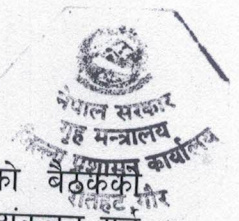 नेपाल सरकार
गृह मन्त्रालय
जिल्ला प्रशासन कार्यालय
रौतहट गौर
को बैठकको